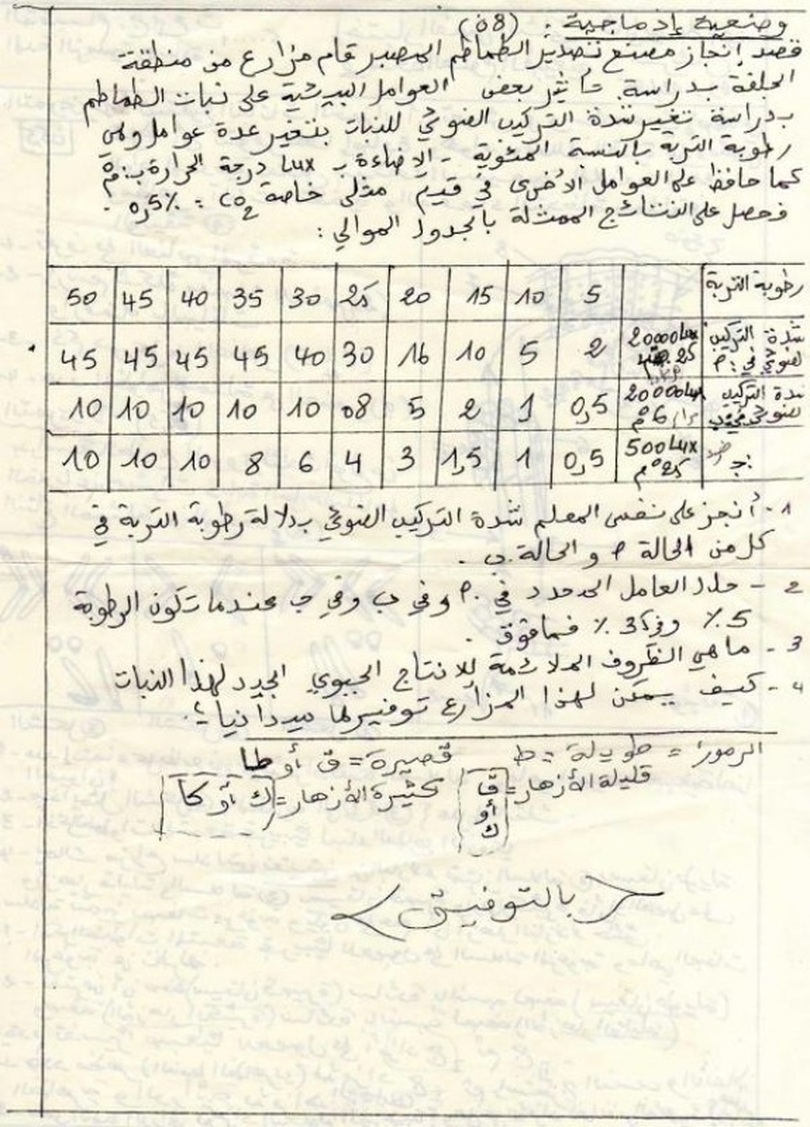 وضعية إدماجية : (08ن)
قصد إنجاز مصنع تصدير الطماطم المصبر قام مزارع من منطقة
الجلفة بدراسة تأثير بعض العوامل البيئية على نبات الطماطم
بدراسة تغير شدة التركيب الضوئي للنبات بتغير عدة عوامل وهي
رطوبة التربة بالنسبة المئوية - الإضاءة ب Lux درجة الحرارة ب: م°
كما حافظ على العوامل الأخرى في قيم مثلى خاصة CO2 = 0,5%.
فحصل على النتائج الممثلة بالجدول الموالي :
رطوبة التربة 5 10 15 20 25 30 35 40 45 50
شدة التركيب الضوئي في: م 20000Lux 25 م° 2 5 10 16 30 40 45 45 45 45
شدة التركيب الضوئي في ب 20000Lux 6 م° 0,5 1 2 5 08 10 10 10 10 10
ج 500Lux 25 م° 0,5 1 1,5 3 4 6 8 10 10 10
1 - أنجز على نفس المعلم شدة التركيب الضوئي بدلالة رطوبة التربة في
كل من الحالة م و الحالة ب .
2 - حدد العامل المحدد في م وفي ب وفي ج عندما تكون الرطوبة
5% وفي 35% فما فوق .
3 - ما هي الظروف الملائمة للإنتاج الحيوي الجيد لهذا النبات
4 - كيف يمكن لهذا المزارع توفيرها ميدانيا ؟.
الرموز = طويلة = ط قصيرة = ق أو طا
قليلة الأزهار = قَ أو ك كثيرة الأزهار = ك أو كَا
بالتوفيق